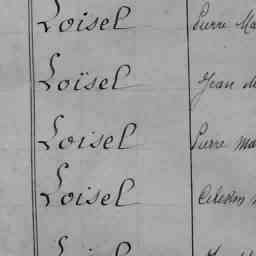 Loisel Pierre Ma
Loïsel Jean M
Loisel Pierre Mar
Loisel Celestin